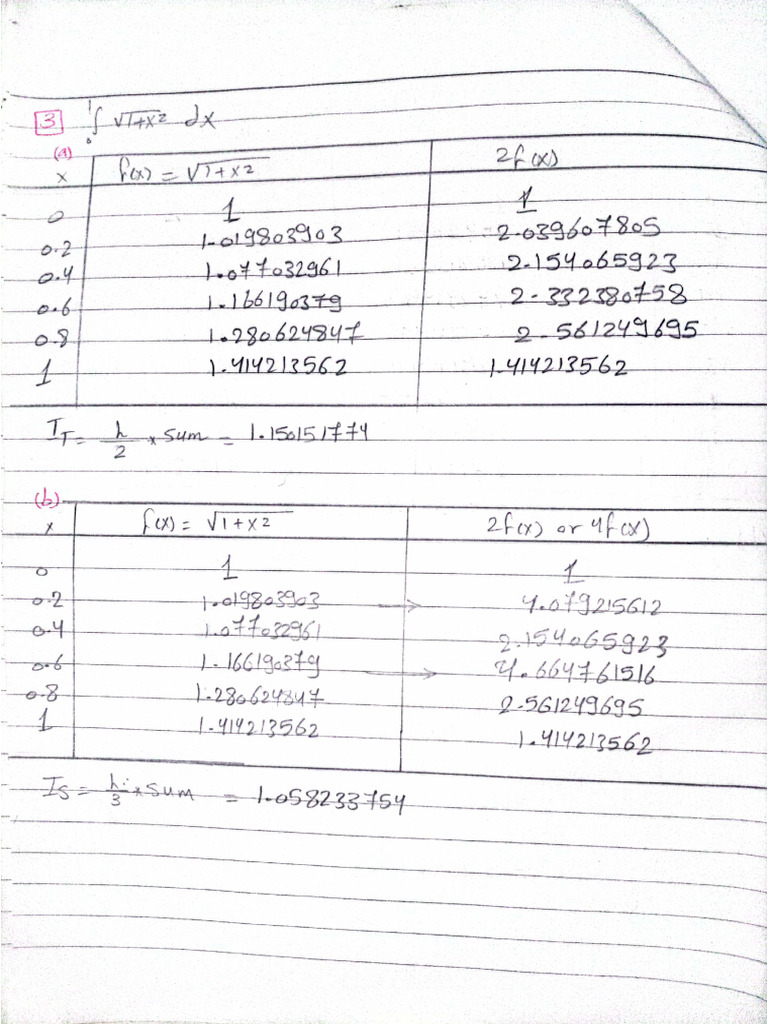 3 ∫₀¹ √1+x² dx
(a)
x f(x) = √1+x² 2f(x)
0 1 1
0.2 1.019803903 2.039607805
0.4 1.077032961 2.154065923
0.6 1.166190379 2.332380758
0.8 1.280624847 2.561249695
1 1.414213562 1.414213562
I_T = h/2 × sum = 1.150151774
(b)
x f(x) = √1+x² 2f(x) or 4f(x)
0 1 1
0.2 1.019803903 → 4.079215612
0.4 1.077032961 2.154065923
0.6 1.166190379 → 4.664761516
0.8 1.280624847 2.561249695
1 1.414213562 1.414213562
I_S = h/3 × sum = 1.058233754